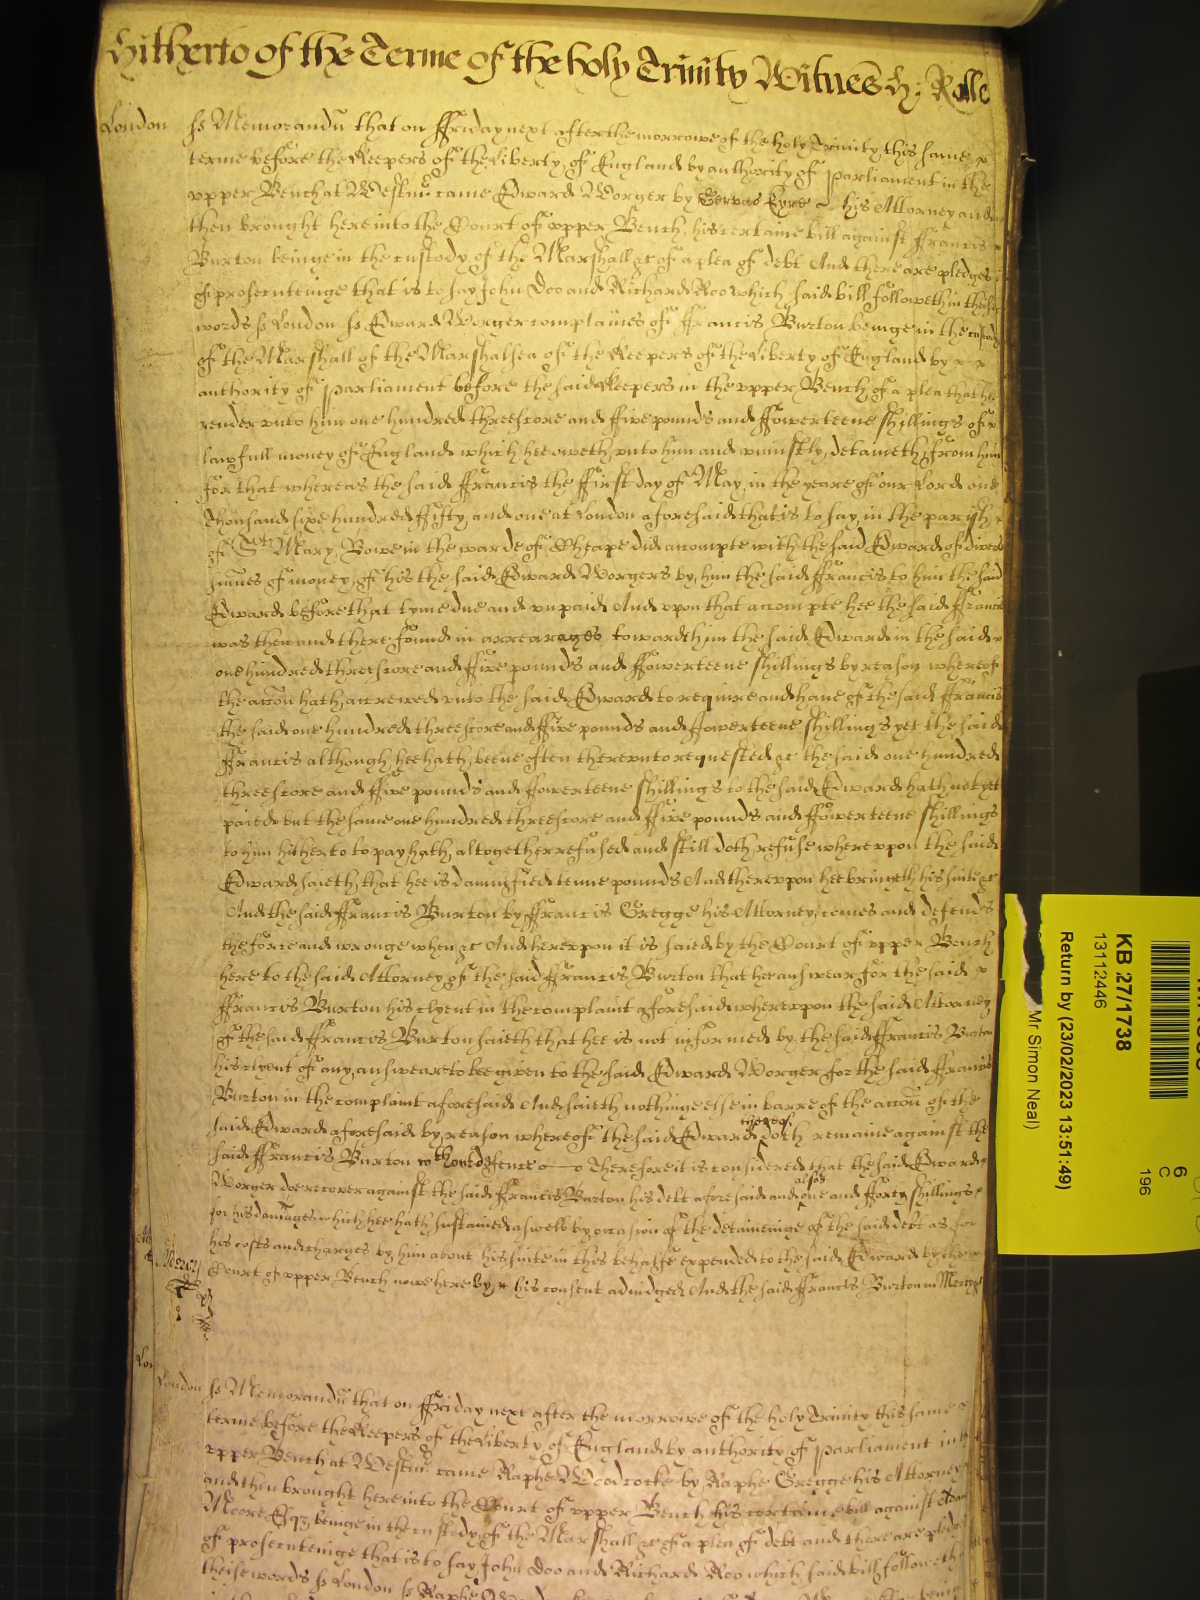 Hitherto of the Terme of the holy Trinity Witnes H: Rolle
London ss Memorandũ that on ffriday next after the morrowe of the holy Trinity this same
terme before the Keepers of the liberty of England by authority of parliament in the
vpper Bench at Westmr̃ came Edward Worger by Gervas Eyre his Attorney and
then brought here into the Court of vpper Bench his certaine bill against ffrancis
Burton beinge in the custody of the Marshall &c of a plea of debt And there are pledges
of prosecuteinge that is to say John Doo and Richard Roo which said bill followeth in these
words ss London ss Edward Worger complaines of ffrancis Burton beinge in the custody
of the Marshall of the Marshalsea of the Keepers of the liberty of England by
authority of parliament before the said Keepers in the vpper Bench of a plea that hee
render vnto him one hundred threescore and ffive pounds and ffowerteene shillings of
lawfull money of England which hee oweth vnto him and uniustly detaineth from him
for that whereas the said ffrancis the ffirst day of May in the yeare of our Lord one
thousand sixe hundred ffifty and one at London aforesaid that is to say in the parish
of St Mary Bowe in the warde of Cheape did accompte with the said Edward of divers
sum̃es of money of his the said Edward Worgers by him the said ffrancis to him the said
Edward before that tyme due and vnpaid And vpon that accompte hee the said ffrancis
was then and there found in arrearages towards him the said Edward in the said
one hundred threescore and ffive pounds and ffowerteene shillings by reason whereof
the acc̃on hath accrewed vnto the said Edward to require and haue of the said ffrancis
the said one hundred threescore and ffive pounds and ffowerteene shillings yet the said
ffrancis although hee hath beene often therevnto requested &c the said one hundred
threescore and ffive pounds and ffowerteene shillings to the said Edward hath not yet
paied but the same one hundred threescore and ffive pounds and ffowerteene shillings
to him hitherto to pay hath altogether refused and still doth refuse wherevpon the said
Edward saieth that hee is damnified tenne pounds And therevpon hee bringeth his suite &c
And the said ffrancis Burton by ffrancis Gregge his Attorney comes and defends
the force and wronge when &c And herevpon it is saied by the Court of vpper Bench
here to the said Attorney of the said ffrancis Burton that hee answear for the said
ffrancis Burton his clyent in the complaint aforesaid wherevpon the said Attorney
of the said ffrancis Burton saieth that hee is not informed by the said ffrancis Burton
his clyent of any answeare to bee given to the said Edward Worger for the said ffrancis
Burton in the complaint aforesaid And saieth nothinge else in barre of the acc̃on of the
said Edward aforesaid by reason whereof the said Edward thereof doth remaine against the
said ffrancis Burton wthout defence Therefore it is considered that the said Edward
Worger doe recover against the said ffrancis Burton his debt aforesaid and alsoe one and fforty shillings
for his damages which hee hath sustained aswell by occasion of the detaineinge of the said debt as for
his costs and charges by him about his suite in this behalfe expended to the said Edward by the
Court of vpper Bench nowe here by his consent adiudged And the said ffrancis Burton in Mercy
Mercy
London ss Memorandũ that on ffriday next after the morrowe of the holy Trinity this same
terme before the Keepers of the liberty of England by authority of parliament in the
vpper Bench at Westmr̃ came Raphe Woodcocke by Raphe Gregge his Attorney
and then brought here into the Court of vpper Bench his certaine bill against
Moore Esqz beinge in the custody of the Marshall &c of a plea of debt and there are pledges
of prosecuteinge that is to say John Doo and Richard Roo which said bill followeth
theise words ss London ss Raphe
KB 27/1738
13112446
Return by (23/02/2023 13:51:49)
Mr Simon Neal)
6
C
196